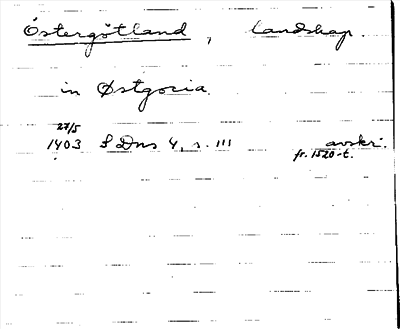 Östergötland, landskap.
in Østgocia.
27/5
1403 SDns 4, s. 111 avskr.
fr. 1520-t.